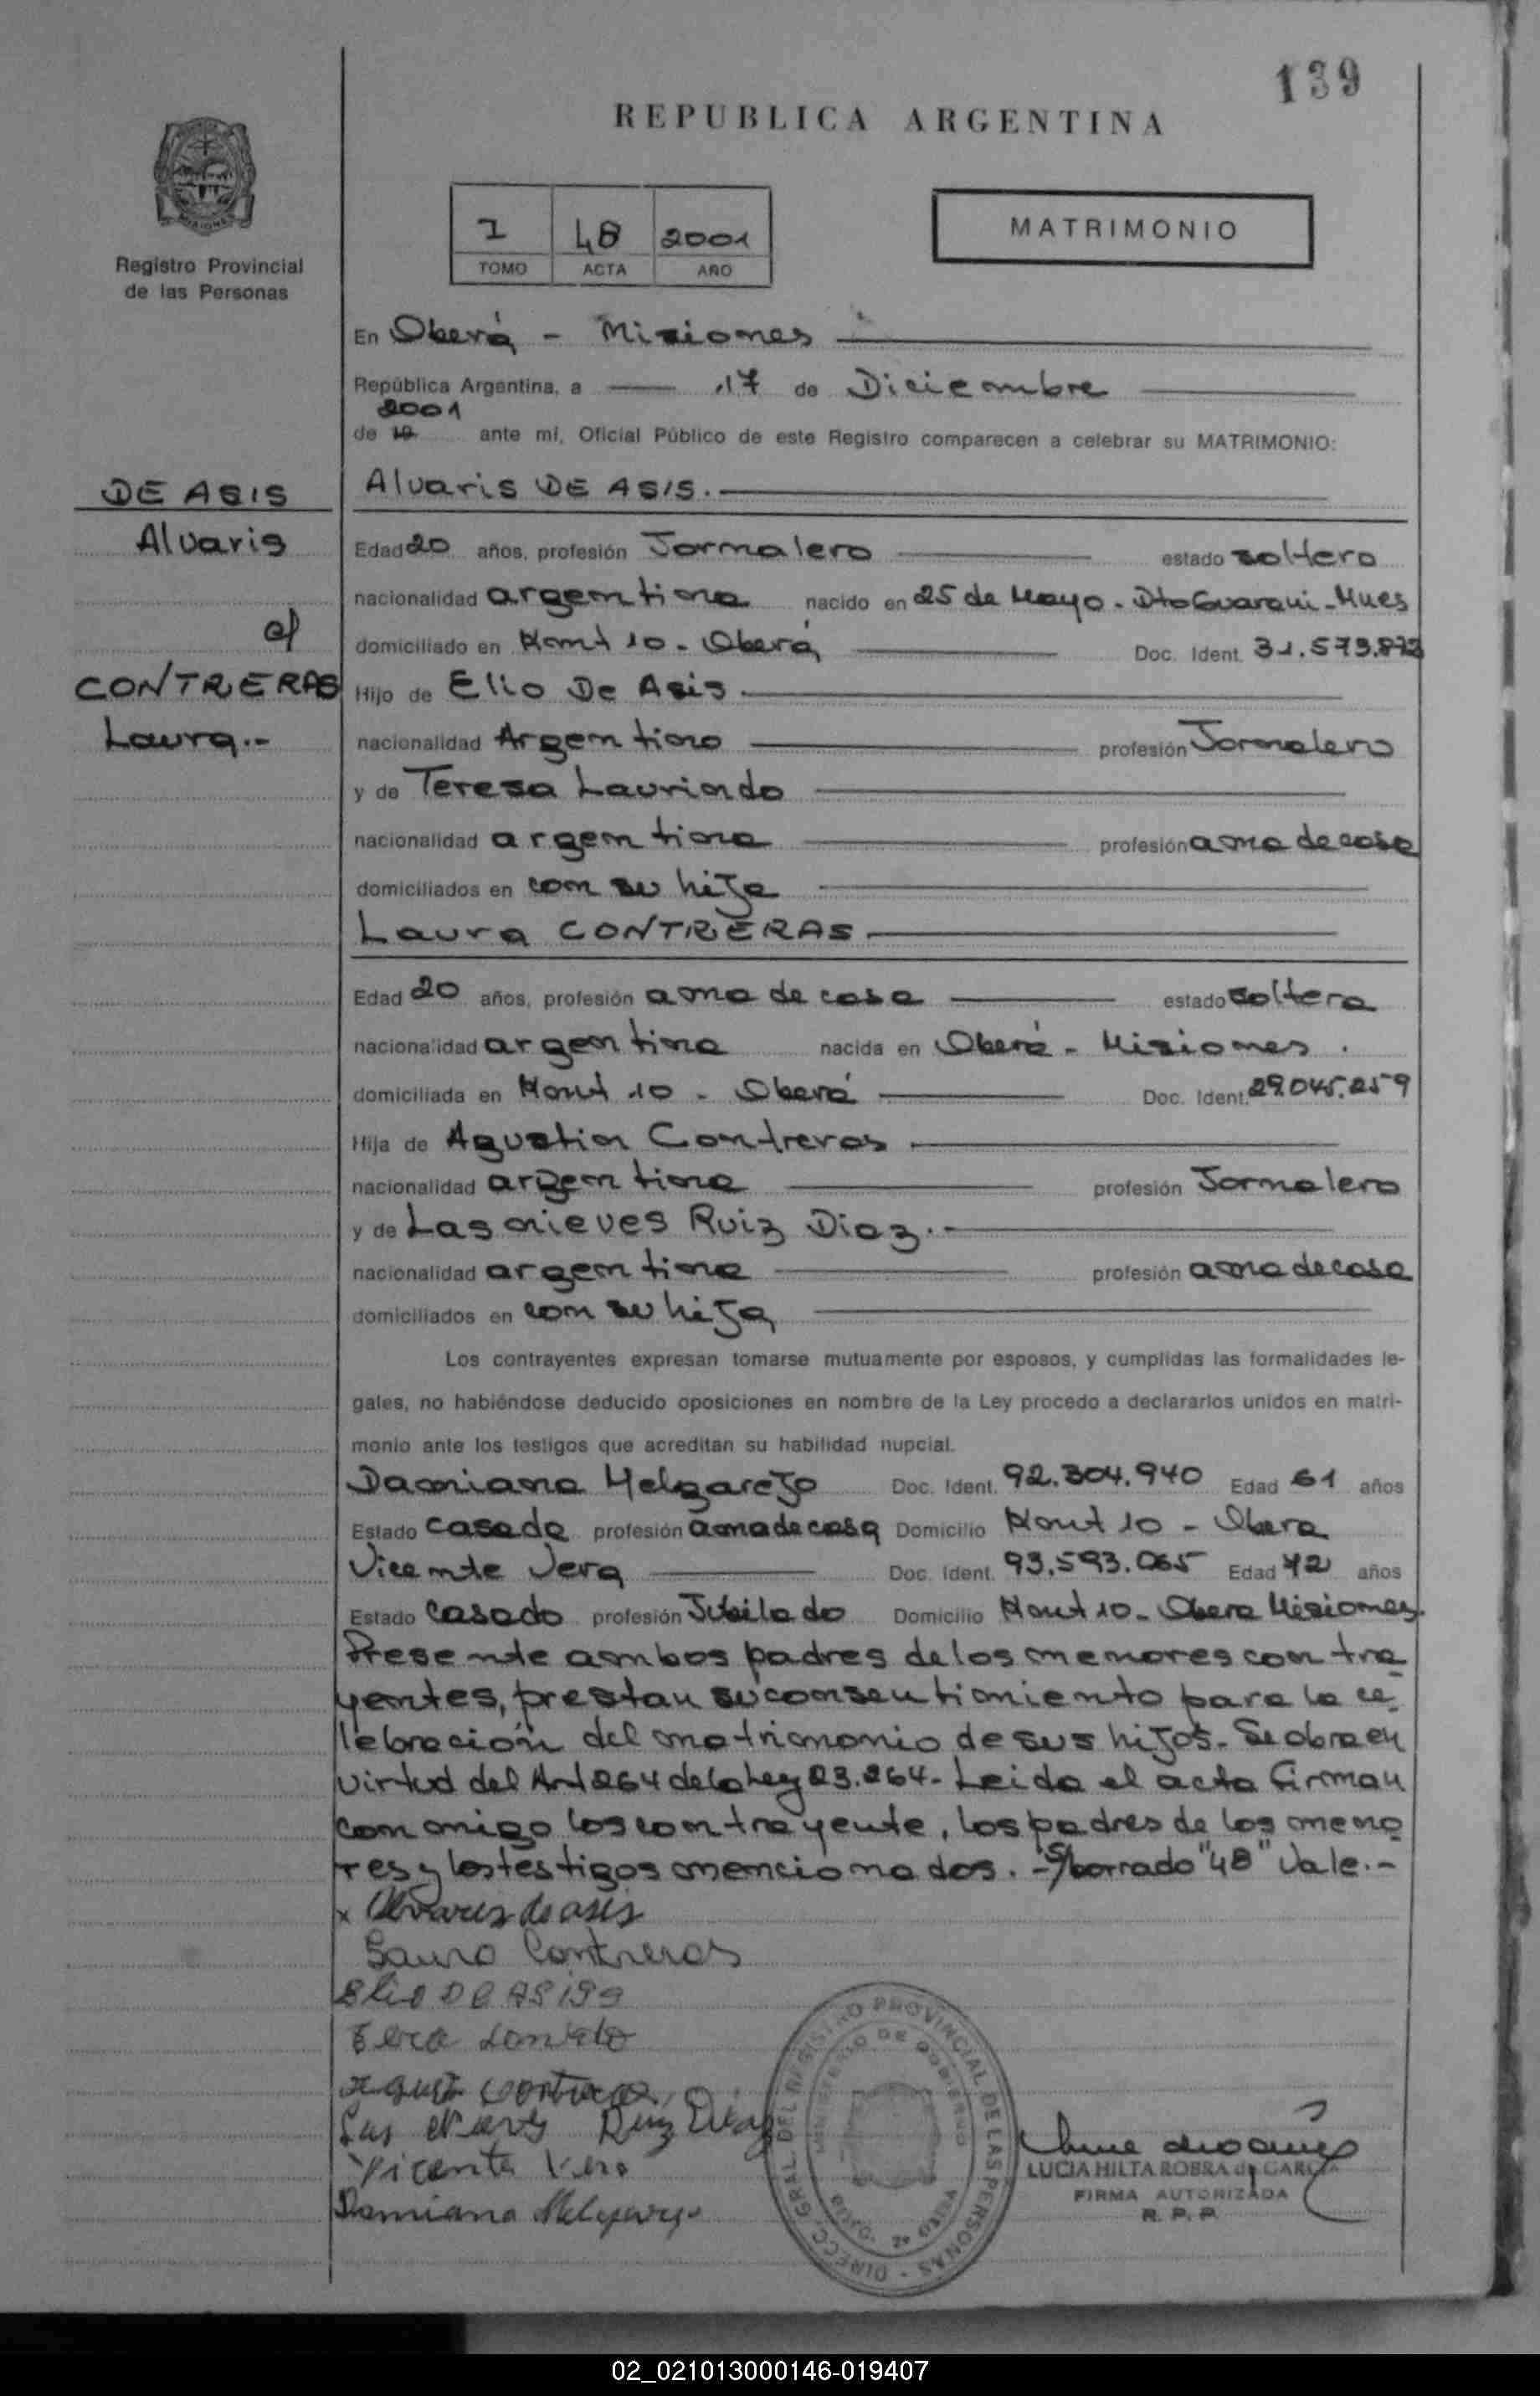 139
REPUBLICA ARGENTINA
1 48 2001
TOMO ACTA AÑO
MATRIMONIO
Registro Provincial
de las Personas
En Oberá - Misiones
República Argentina, a 17 de Diciembre
2001
de 19 ante mí, Oficial Público de este Registro comparecen a celebrar su MATRIMONIO:
DE ASIS
Alvaris
c/
CONTRERAS
Laura.-
Alvaris DE ASIS.
Edad 20 años, profesión Jornalero estado soltero
nacionalidad argentina nacido en 25 de Mayo - Dto Guarani - Mnes
domiciliado en Km 10 - Oberá Doc. Ident. 31.573.872
Hijo de Elio De Asis
nacionalidad Argentino profesión Jornalero
y de Teresa Laurindo
nacionalidad argentina profesión ama de casa
domiciliados en con su hija
Laura CONTRERAS
Edad 20 años, profesión ama de casa estado soltera
nacionalidad argentina nacida en Oberá - Misiones.
domiciliada en - Oberá Doc. Ident. 29.045.259
Hija de Agustin Contreras
nacionalidad argentina profesión Jornalero
y de Las nieves Ruiz Diaz.-
nacionalidad argentina profesión ama de casa
domiciliados en con su hija
Los contrayentes expresan tomarse mutuamente por esposos, y cumplidas las formalidades le-
gales, no habiéndose deducido oposiciones en nombre de la Ley procedo a declararlos unidos en matri-
monio ante los testigos que acreditan su habilidad nupcial.
Damiana Melgarejo Doc. Ident. 92.304.940 Edad 61 años
Estado casada profesión ama de casa Domicilio - Obera
Vicente Vera Doc. Ident. 93.593.065 Edad 72 años
Estado casado profesión Jubilado Domicilio - Obera Misiones.
Presente ambos padres de los menores contra
yentes, prestan su consentimiento para la ce
lebración del matrimonio de sus hijos.- Se obra en
virtud del Art 264 de la Ley 23.264.- Leida el acta firman
conmigo los contrayente, los padres de los meno
res y los testigos mencionados.- S/borrado "48" Vale.-
x Alvaris de asis
Laura Contreras
Elio DE ASIS
Contreras
Ruiz Diaz
Vicente Vera
Damiana Melgarejo
DIRECC. GRAL. DEL REGISTRO PROVINCIAL DE LAS PERSONAS
MINISTERIO DE GOBIERNO
LUCIA HILTA ROBRA de GARCIA
FIRMA AUTORIZADA
R. P. P.
02_021013000146-019407